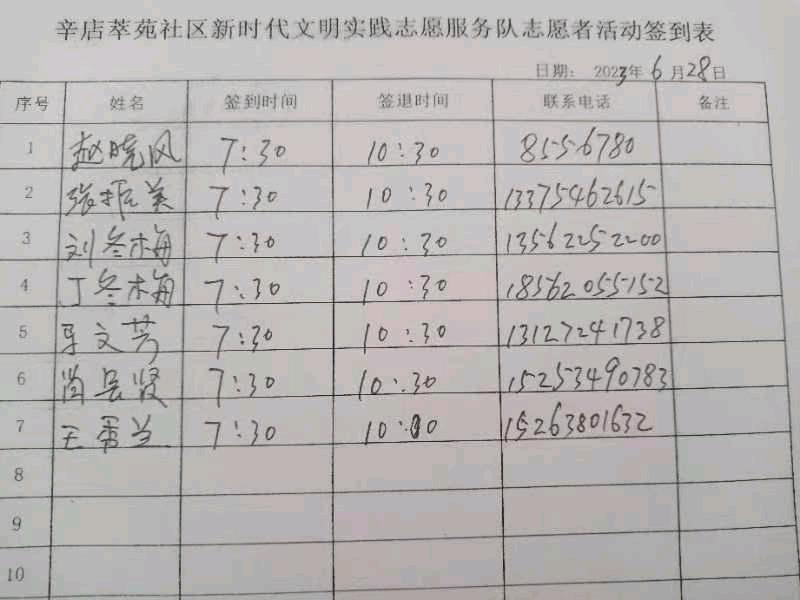 辛店萃苑社区新时代文明实践志愿服务队志愿者活动签到表
日期: 2023年6月28日
序号 姓名 签到时间 签退时间 联系电话 备注
1 赵晓风 7:30 10:30 8556780
2 张振美 7:30 10:30 13375462615
3 刘冬梅 7:30 10:30 13562252200
4 丁冬梅 7:30 10:30 18562055152
5 文芳 7:30 10:30 13127241738
6 7:30 10:30 15253490783
7 王 7:30 10:00 15263801632
8
9
10